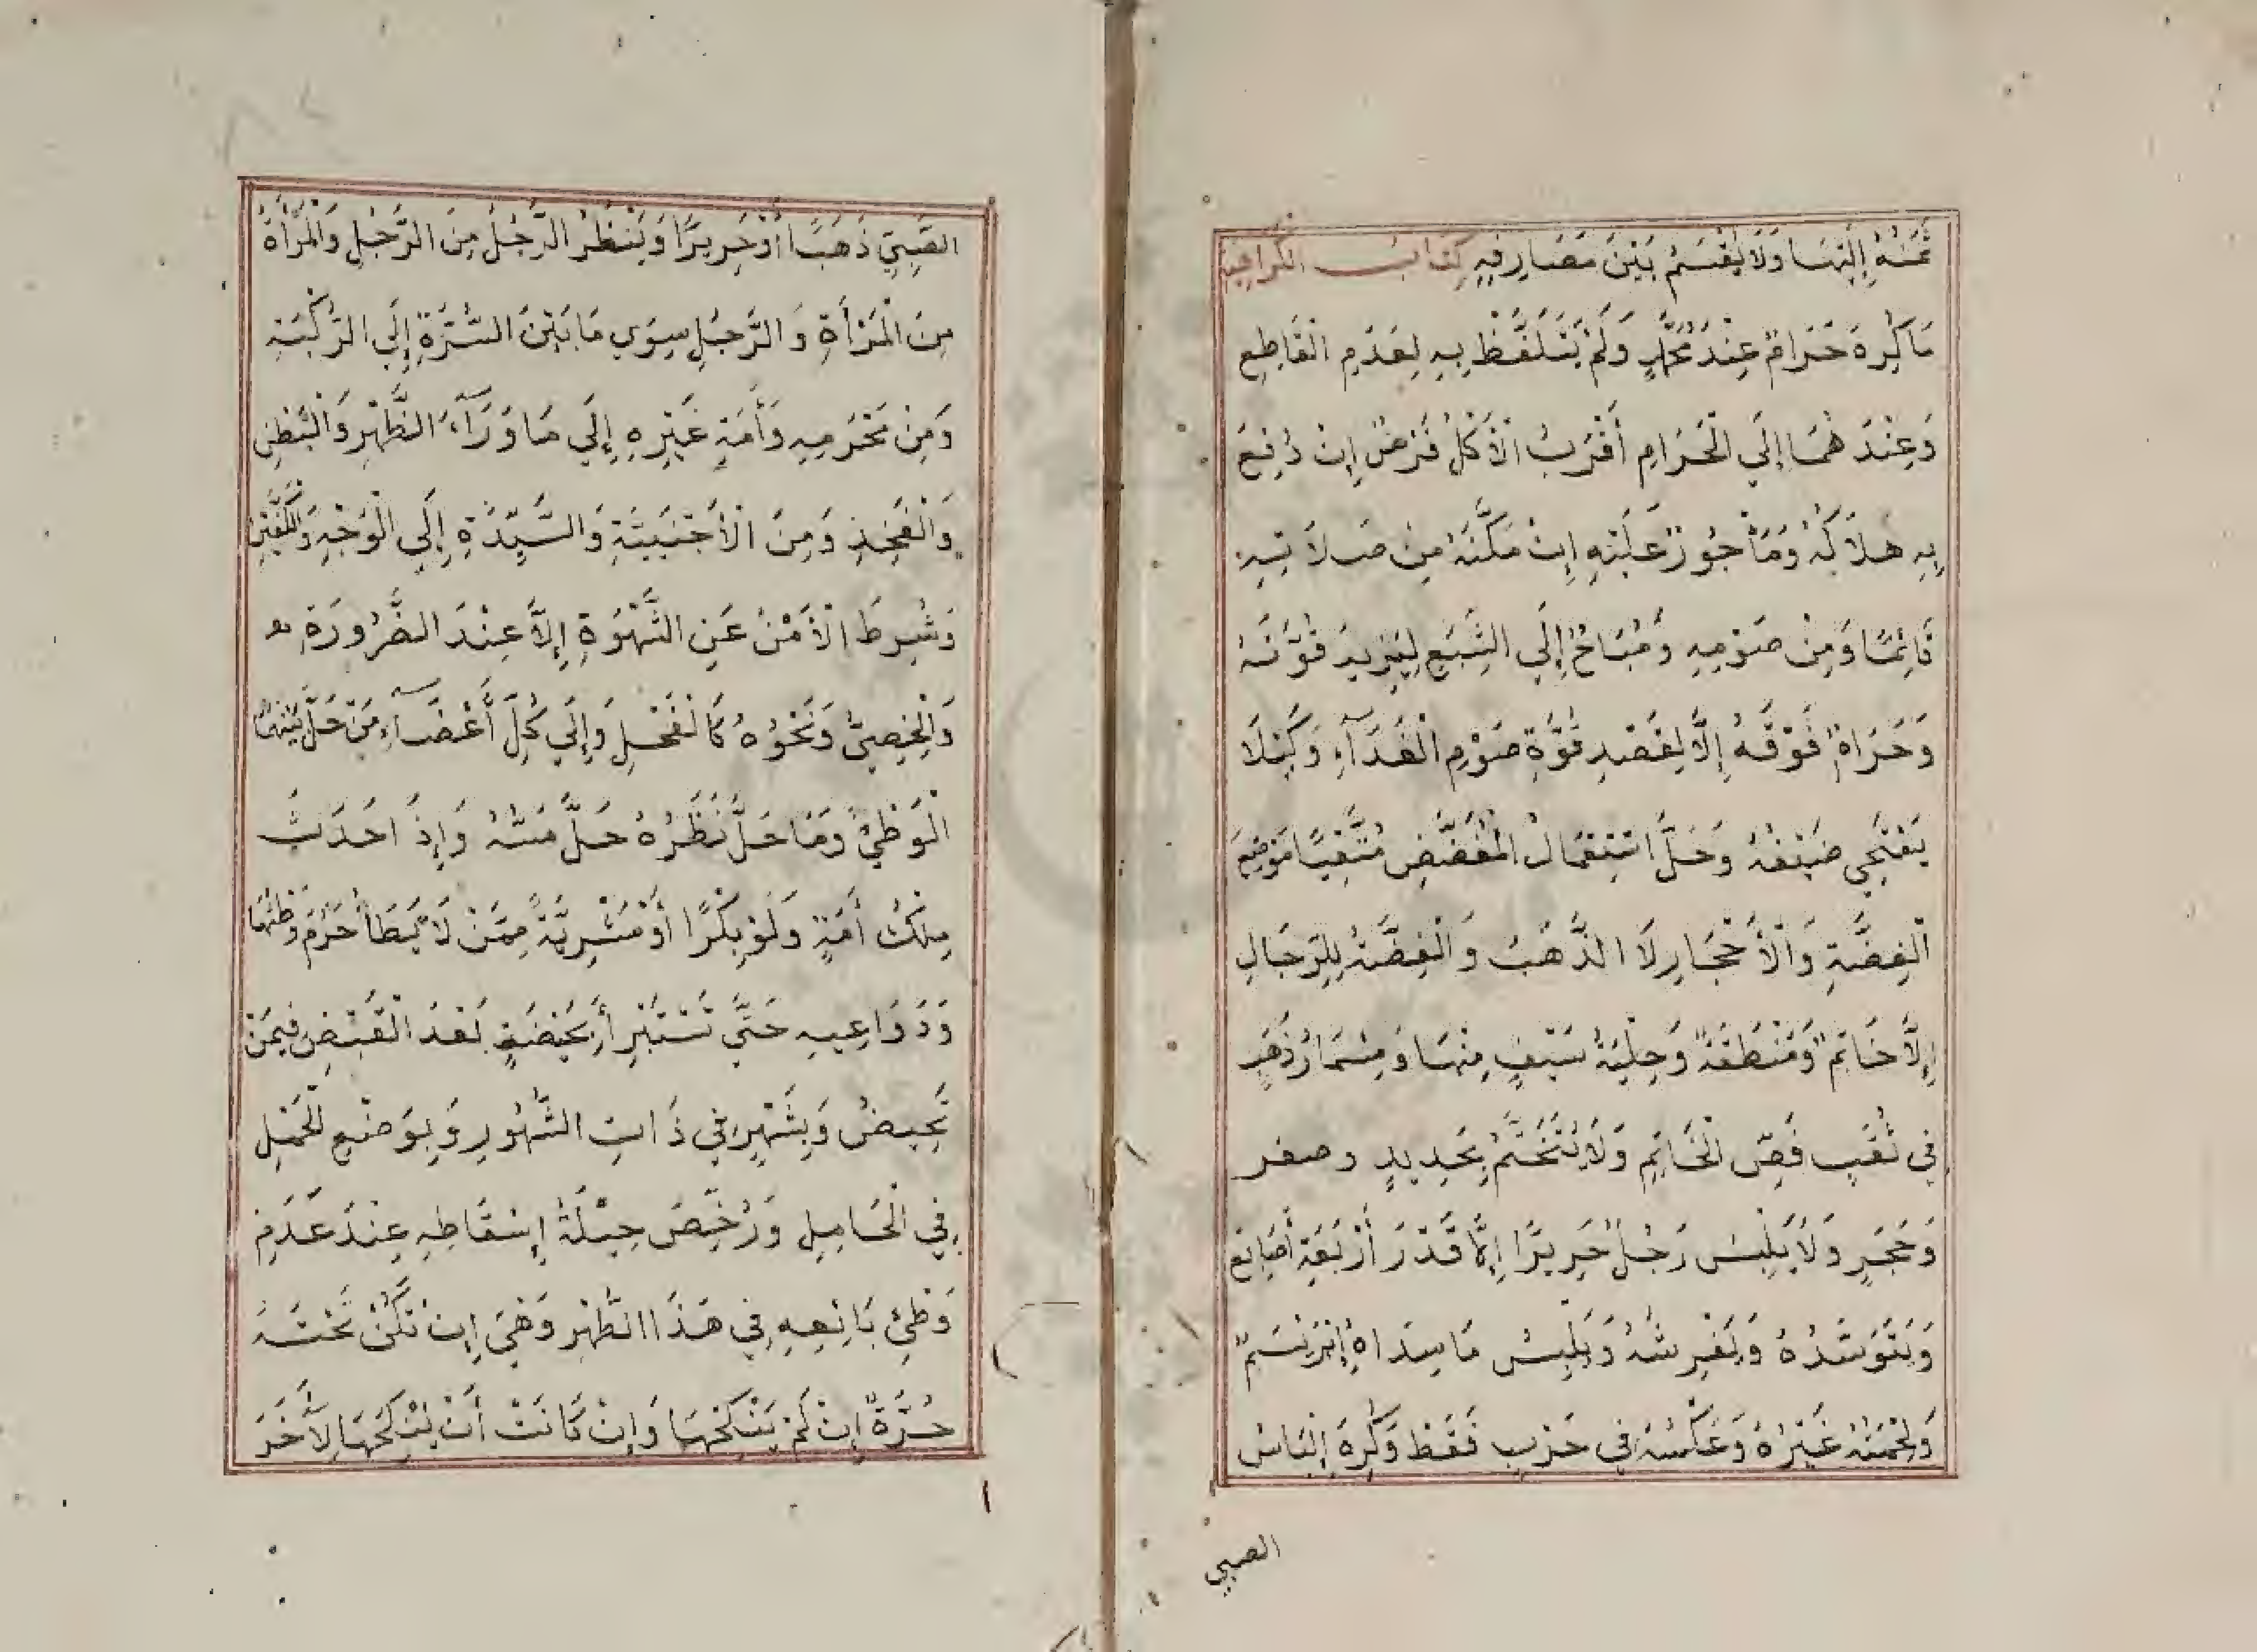 ثَمَنُهُ إِلَيْهَا وَلَا يُقْسَمُ بَيْنَ مَصَارِفِهِ كِتَابُ الْكَرَاهِيَةِ
مَا كُرِهَ حَرَامٌ عِنْدَ مُحَمَّدٍ وَلَمْ يَتَلَفَّظْ بِهِ لِعَدَمِ الْقَاطِعِ
وَعِنْدَ هُمَا إِلَي الْحَرَامِ أَقْرَبُ الْأَكْلُ فَرْضٌ إِنْ دُفِعَ
بِهِ هَلَاكُهُ وَمَأْجُورٌ عَلَيْهِ إِنْ مَكَّنَهُ مِنْ صَلَاتِهِ
قَائِمًا وَمِنْ صَوْمِهِ وَمُبَاحٌ إِلَي الشِّبَعِ لِيَزِيدَ قُوَّتَهُ
وَحَرَامٌ فَوْقَهُ إِلَّا لِقَصْدِ قُوَّةِ صَوْمِ الْغَدَآءِ وَكَيْلَا
يَسْتَحْيِ ضَيْفُهُ وَحَلَّ اسْتِعْمَالُ الْمُفَضَّضِ مُتَّقِيًا مَوْضِعَ
الْفِضَّةِ وَالْأَحْجَارِ لَا الذَّهَبُ وَالْفِضَّةُ لِلرِّجَالِ
إِلَّا خَاتَمٌ وَمَنْطَقَةٌ وَحِلْيَةُ سَيْفٍ مِنْهَا وَمِسْمَارُ ذَهَبٍ
فِي ثُقْبِ فَصِّ الْخَاتِمِ وَلَا يُتَخَتَّمُ بِحَدِيدٍ وصفر
وَحَجَرٍ وَلَا يَلْبِسُ رَجُلٌ حَرِيرًا إِلَّا قَدْرَ أَرْبَعَةِ أَصَابِعَ
وَيَتَوَسَّدُهُ وَيَفْرِشُهُ وَيَلْبِسُ مَا سِدَاهُ إِبْرَيْسَمٌ
وَلُحْمَتُهُ غَيْرُهُ وَعَكْسُهُ فِي حَرْبٍ فَقَطْ وَكُرِهَ إِلْبَاسُ
الصبي
الصَّبِيِّ ذَهَبًا أَوْ حَرِيرًا وَيَنْظُرُ الرَّجُلُ مِنَ الرَّجُلِ وَالْمَرْأَةُ
مِنَ الْمَرْأَةِ وَالرَّجُلِ سِوَي مَا بَيْنَ السُّرَّةِ إِلَي الرُّكْبَةِ
وَمِنْ مَحْرَمِهِ وَأَمَةِ غَيْرِهِ إِلَي مَا وَرَآءَ الظَّهْرِ وَالْبَطْنِ
وَالْفَخِذِ وَمِنَ الْأَجْنَبِيَّةِ وَالسَّيِّدَةِ إِلَي الْوَجْهِ وَالْكَفَّيْنِ
وَشُرِطَ الْأَمْنُ عَنِ الشَّهْوَةِ إِلَّا عِنْدَ الضَّرُورَةِ
وَالْخَصِيُّ وَنَحْوُهُ كَالْفَحْلِ وَإِلَي كُلِّ أَعْضَآءِ مَنْ حَلَّ بَيْنَهُمَا
الْوَطْيُ وَمَا حَلَّ نَظَرُهُ حَلَّ مَسُّهُ وَإِذَ احَدَثَ
مِلْكُ أَمَةٍ وَلَوْ بِكْرًا أَوْ مَشْرِيَّةً مِمَّنْ لَا يَطَأُ حَرُمَ وَطْئُهَا
وَدَوَاعِيهِ حَتَّي تَسْتَبْرِأَ بِحَيْضَةٍ بَعْدَ الْقَبْضِ فِيمَنْ
تَحِيضُ وَبِشَهْرٍ فِي ذَاتِ الشُّهُورِ وَبِوَضْعِ الْحَمْلِ
فِي الْحَامِلِ وَرُخِّصَ حِيْلَةُ إِسْقَاطِهِ عِنْدَ عَدَمِ
وَطْئِ بَائِعِهِ فِي هَذَا الطُّهْرِ وَهِيَ إِنْ تَكُنْ تَحْتَهُ
حُرَّةٌ إِنْ لَمْ يَنْكِحْهَا وَإِنْ كَانَتْ أَنْ يُنْكِحَهَا لِآخَرَ